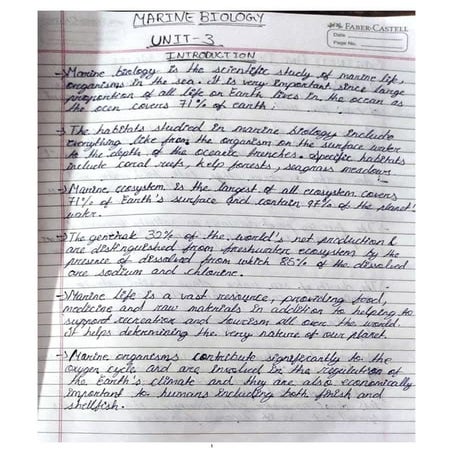 MARINE BIOLOGY
FABER-CASTELL
Date
Page No.
UNIT-3
INTRODUCTION
→ Marine biology is the scientific study of marine life,
organisms in the sea. It is very important since large
proportion of all life on Earth lives in the ocean as
the ocen covers 71% of earth.
→ The habitats studied in marine biology include
everything like from the organism on the surface water
to the depths of the oceanic trenches. Specific habitats
include coral reefs, kelp forests, seagrass meadows
→ Marine ecosystem is the largest of all ecosystem covers
71% of Earth's surface and contain 97% of the planet's
water.
→ The generate 32% of the world's net production &
are distinguished from freshwater ecosystem by the
presence of dissolved from which 85% of the dissolved
are sodium and chlorine.
→ Marine life is a vast resource, providing food,
medicine and raw materials in addition to helping to
support recreation and tourism all over the world.
It helps determining the very nature of our planet.
→ Marine organisms contribute significantly to the
oxygen cycle and are involved in the regulation of
the Earth's climate and they are also economically
important to humans including both finish and
shellfish.